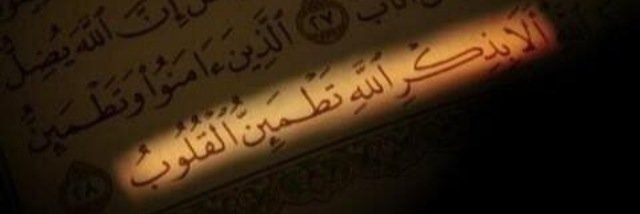 إِنَّ ٱللَّهَ يُضِلُّ
أَنَابَ ٢٧ ٱلَّذِينَ ءَامَنُوا۟ وَتَطْمَئِنُّ
أَلَا بِذِكْرِ ٱللَّهِ تَطْمَئِنُّ ٱلْقُلُوبُ ٢٨